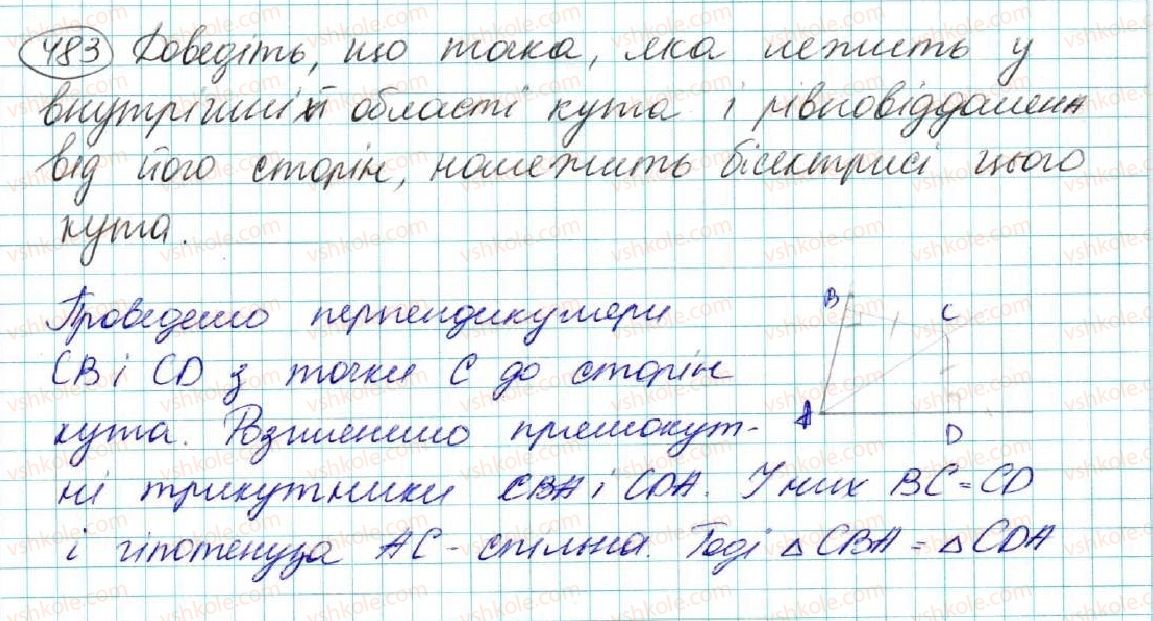 483 Доведіть, що точка, яка лежить у
внутрішній області кута і рівновіддалена
від його сторін, належить бісектрисі цього
кута.
Проведемо перпендикуляри
CB і CD з точки C до сторін
кута. Розглянемо прямокут-
ні трикутники CBA і CDA. У них BC = CD
і гіпотенуза AC - спільна. Тоді △CBA = △CDA
B
C
A
D
vshkole.com